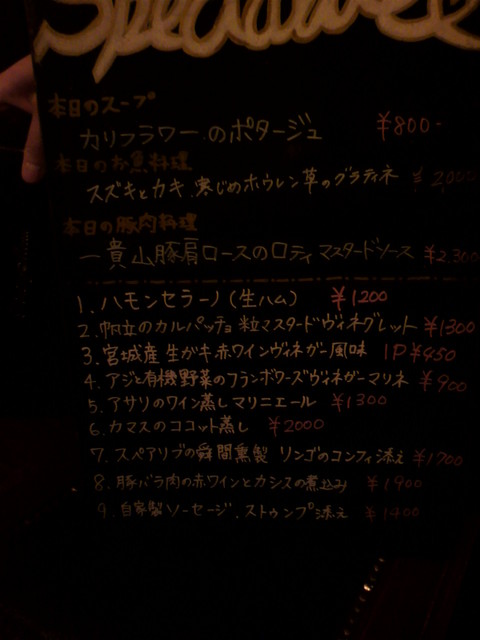 本日のスープ
カリフラワーのポタージュ ¥800-
本日のお魚料理
スズキとカキ、寒じめホウレン草のグラティネ ¥2,000
本日の豚肉料理
一貴山豚肩ロースのロティ マスタードソース ¥2,300
1. ハモンセラーノ(生ハム) ¥1200
2. 帆立のカルパッチョ 粒マスタードヴィネグレット ¥1300
3. 宮城産 生がキ 赤ワインヴィネガー風味 1P ¥450
4. アジと有機野菜のフランボワーズヴィネガーマリネ ¥900
5. アサリのワイン蒸しマリニエール ¥1300
6. カマスのココット蒸し ¥2000
7. スペアリブの瞬間燻製 リンゴのコンフィ添え ¥1700
8. 豚バラ肉の赤ワインとカシスの煮込み ¥1900
9. 自家製ソーセージ、ストゥンプ添え ¥1400